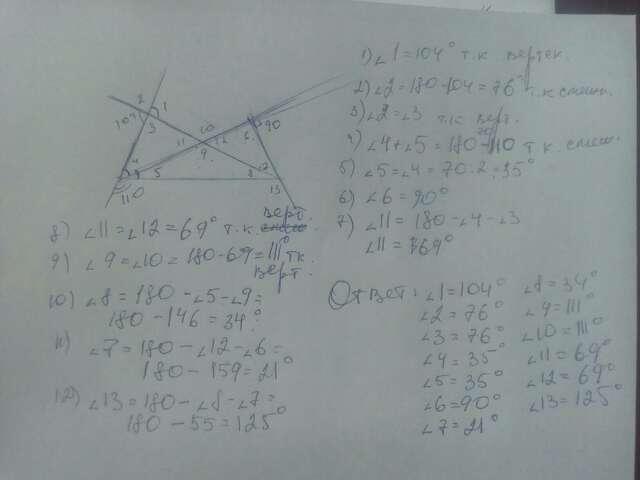 1) ∠1=104° т.к вертек.
2) ∠2=180-104=76° т.к смежн.
3) ∠2=∠3 т.к верт.
4) ∠4+∠5=180-110 70 т к смеж.
5) ∠5=∠4=70:2=35°
6) ∠6=90°
7) ∠11=180-∠4-∠3
∠11=69°
2 1
104 3
4 11 10 12 6 90
9
5 8 7
110 13
8) ∠11=∠12=69° т.к верт.
9) ∠9=∠10=180-69=111° т.к верт.
10) ∠8=180-∠5-∠9=
180-146=34°
11) ∠7=180-∠12-∠6=
180-159=21°
12) ∠13=180-∠8-∠7=
180-55=125°
Ответ: ∠1=104° ∠8=34°
∠2=76° ∠9=111°
∠3=76° ∠10=111°
∠4=35° ∠11=69°
∠5=35° ∠12=69°
∠6=90° ∠13=125°
∠7=21°